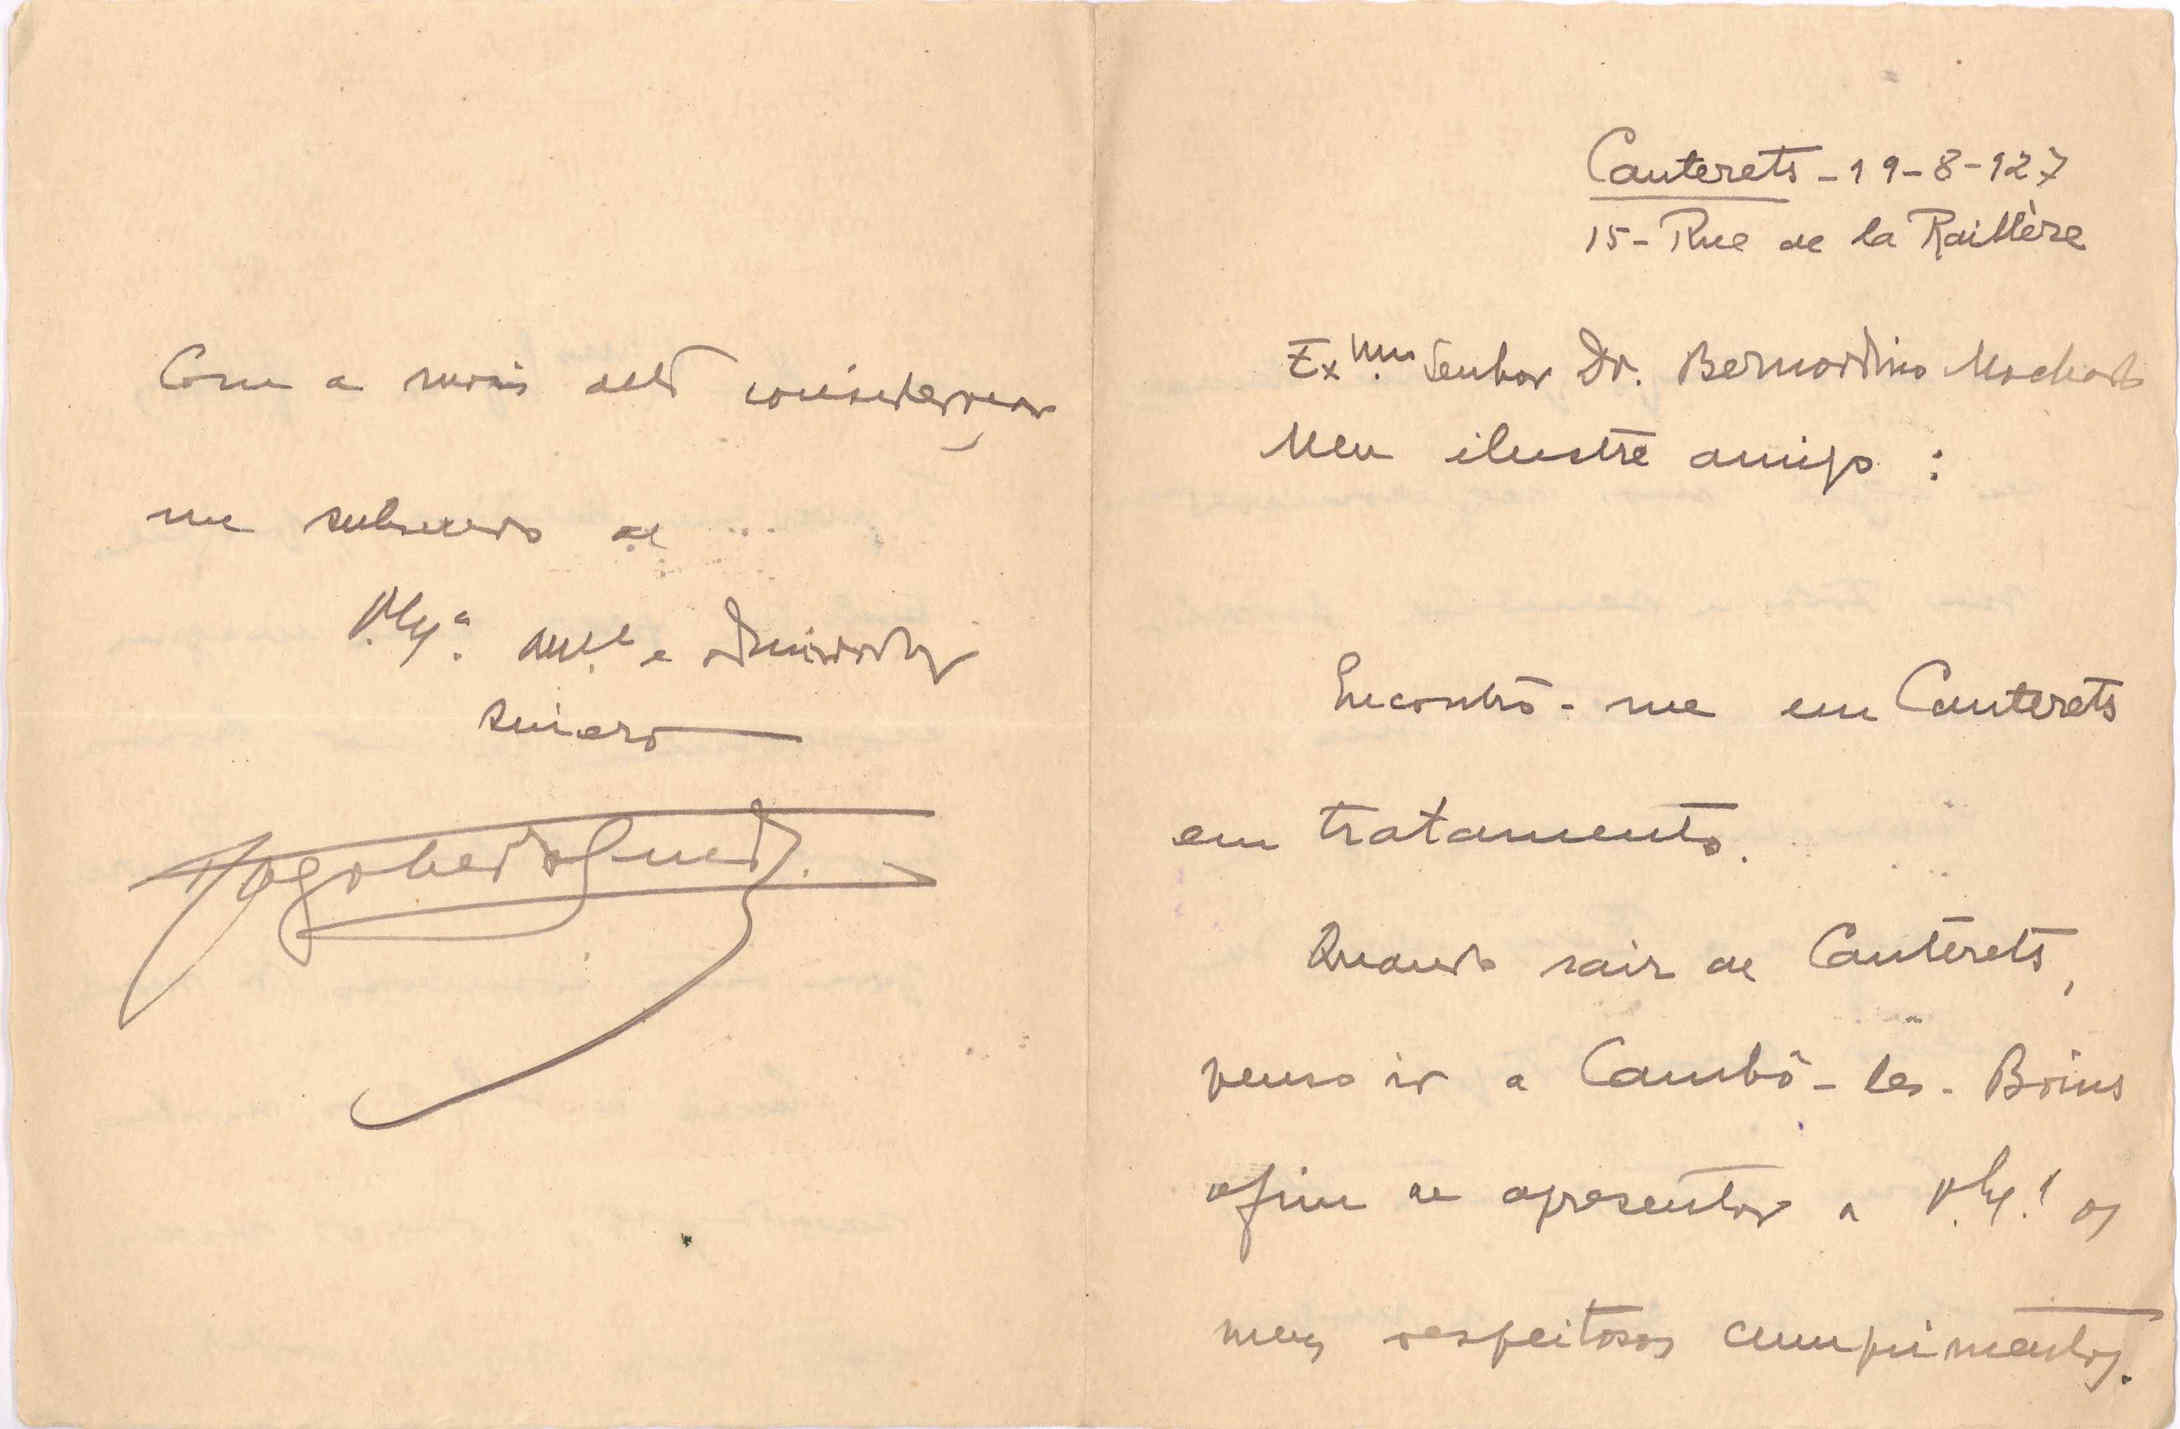 Cauterets - 19-8-927
15 - Rue de la Raillère
Ex.mo Senhor Dr. Bernardino Machado
Meu ilustre amigo :
Encontro-me em Cauterets
em tratamento.
Quando sair de Cauterets,
penso ir a Cambô-les-Bains
afim de apresentar a V. Ex.ª os
meus respeitosos cumprimentos.
Com a mais alta consideração
me subscrevo de
V. Ex.ª am.º e admirador
sincero
Dagoberto Guedes.